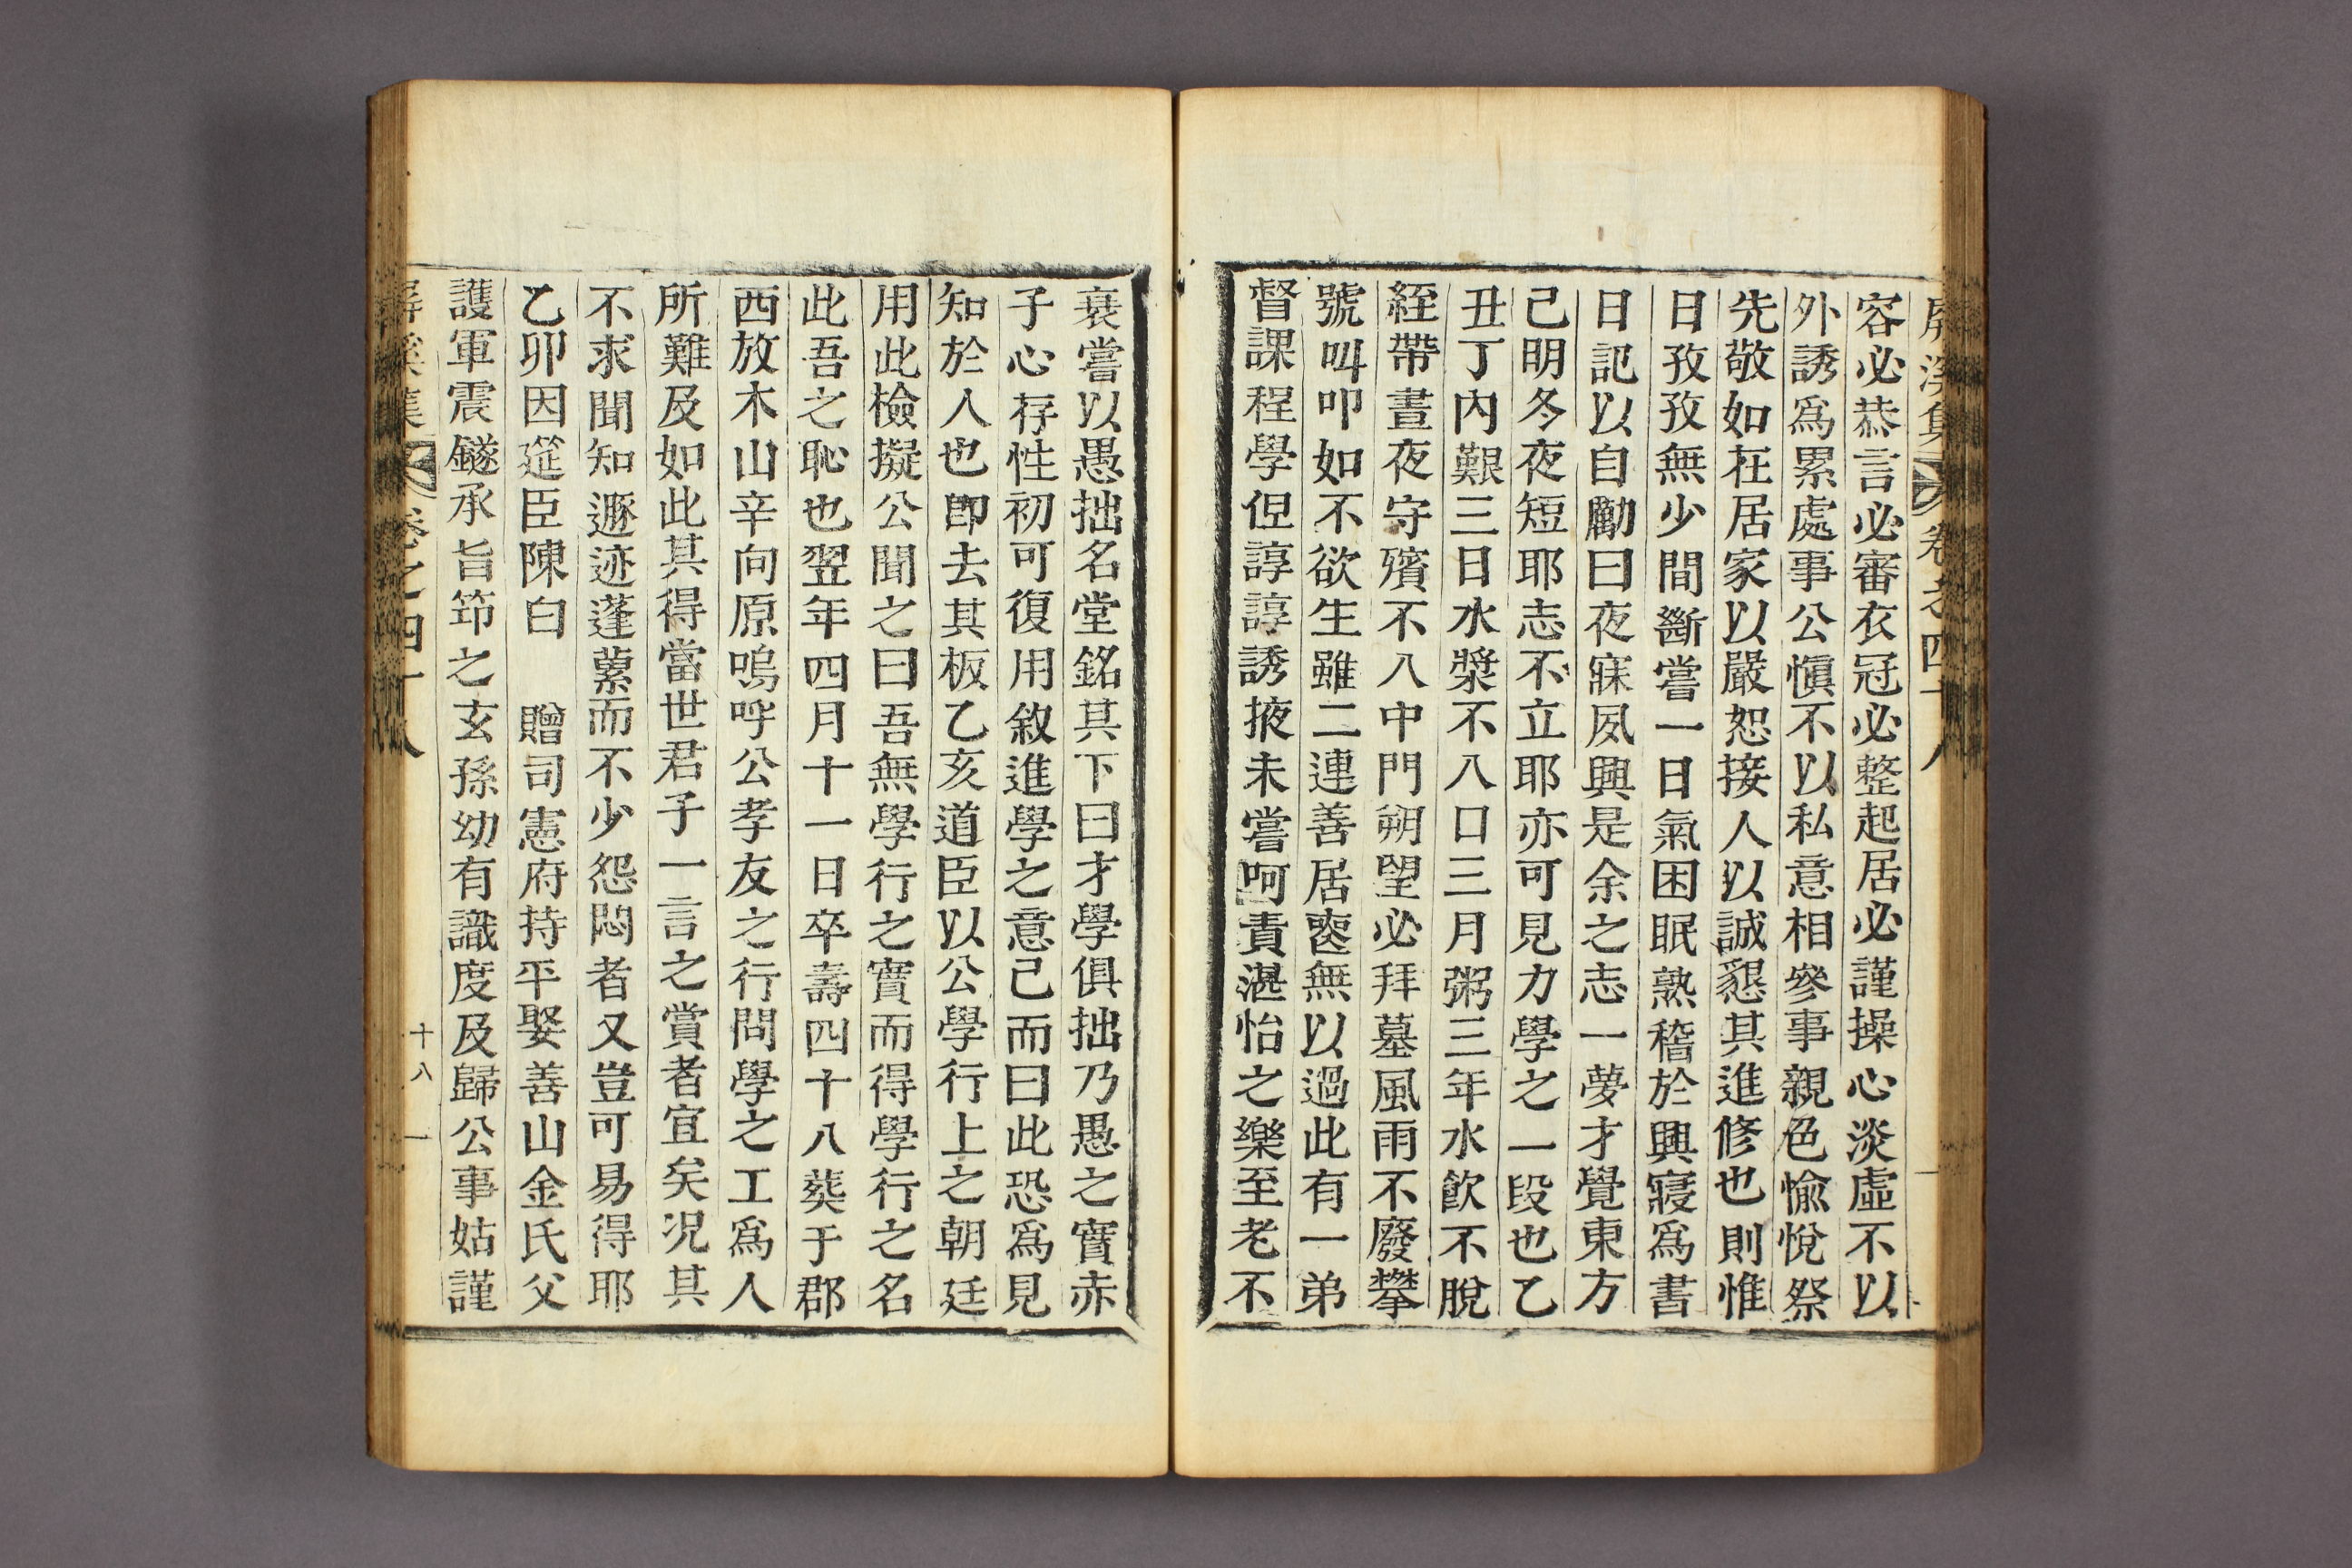 屏溪集 卷之四十八
容必恭言必審衣冠必整起居必謹操心淡虛不以
外誘爲累處事公愼不以私意相參事親色愉悅祭
先敬如在居家以嚴恕接人以誠懇其進修也則惟
日孜孜無少間斷嘗一日氣困眠熟稽於興寢爲書
日記以自勵曰夜寐夙興是余之志一夢才覺東方
已明冬夜短耶志不立耶亦可見力學之一段也乙
丑丁內艱三日水漿不入口三月粥三年水飮不脫
絰帶晝夜守殯不入中門朔望必拜墓風雨不廢攀
號叫叩如不欲生雖二連善居喪無以過此有一弟
督課程學但諄諄誘掖未嘗呵責湛怡之樂至老不
衰嘗以愚拙名堂銘其下曰才學俱拙乃愚之實赤
子心存性初可復用敘進學之意已而曰此恐爲見
知於人也卽去其板乙亥道臣以公學行上之朝廷
用此檢擬公聞之曰吾無學行之實而得學行之名
此吾之恥也翌年四月十一日卒壽四十八葬于郡
西放木山辛向原嗚呼公孝友之行問學之工爲人
所難及如此其得當世君子一言之賞者宜矣況其
不求聞知遯迹蓬藁而不少怨悶者又豈可易得耶
乙卯因筵臣陳白 贈司憲府持平娶善山金氏父
護軍震鐩承旨筇之玄孫幼有識度及歸公事姑謹
屏溪集 卷之四十八 十八